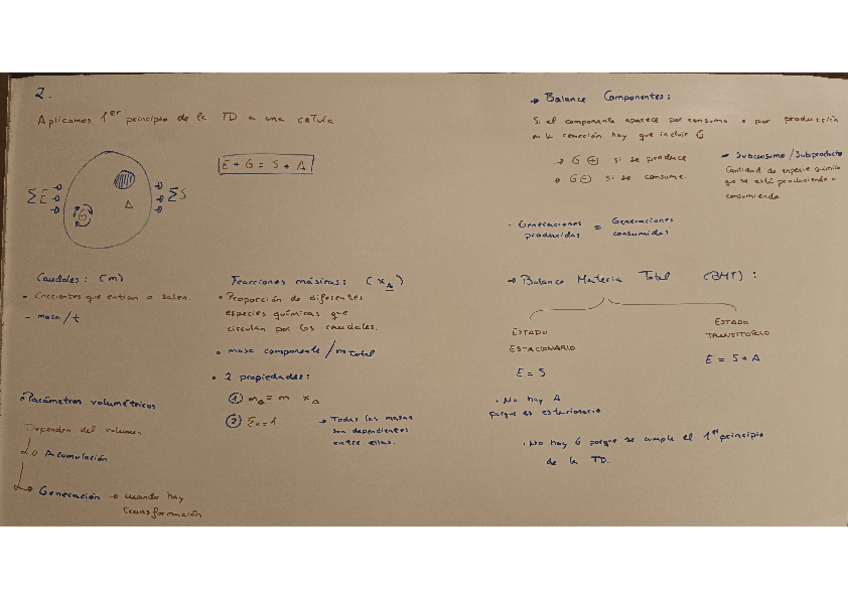 2.
Aplicamos 1er principio de la TD a una célula
E + G = S + A
ΣE
ΣS
G
A
Caudales: (m)
• Corrientes que entran o salen.
- masa/t
Fracciones másicas: (xA)
• Proporción de diferentes
especies químicas que
circulan por los caudales.
• masa componente/m total
• 2 propiedades:
① mA = m · xA
② Σx=1
→ Todas las masas
son dependientes
entre ellas.
• Parámetros volumétricos
Dependen del volumen
Acumulación
Generación → cuando hay
transformación
→ Balance Componentes:
Si el componente aparece por consumo o por producción
en la reacción hay que incluir G
→ G ⊕ si se produce
→ G ⊖ si se consume.
- Subconsumo/Subproducto
Cantidad de especie química
que se está produciendo o
consumiendo
· Generaciones producidas = Generaciones consumidas
→ Balance Materia Total (BMT):
ESTADO
ESTACIONARIO
E = S
ESTADO
TRANSITORIO
E = S + A
· No hay A
porque es estacionario
· No hay G porque se cumple el 1er principio
de la TD.